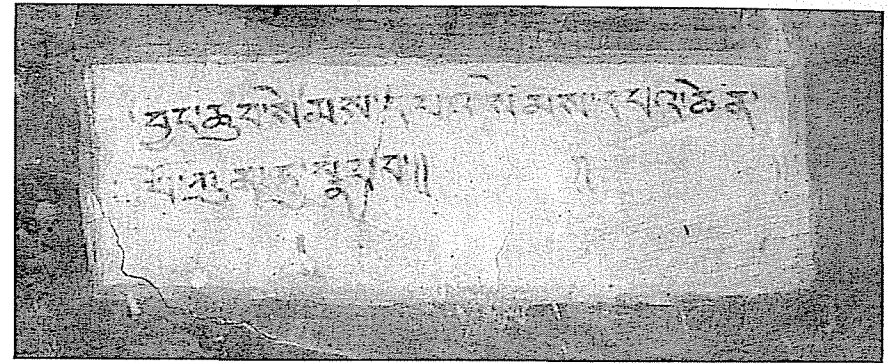 བྱང་ཆུབ་སེམས་དཔའ་སེམས་དཔའ་ཆེན་
པོ་ཀུན་ཏུ་